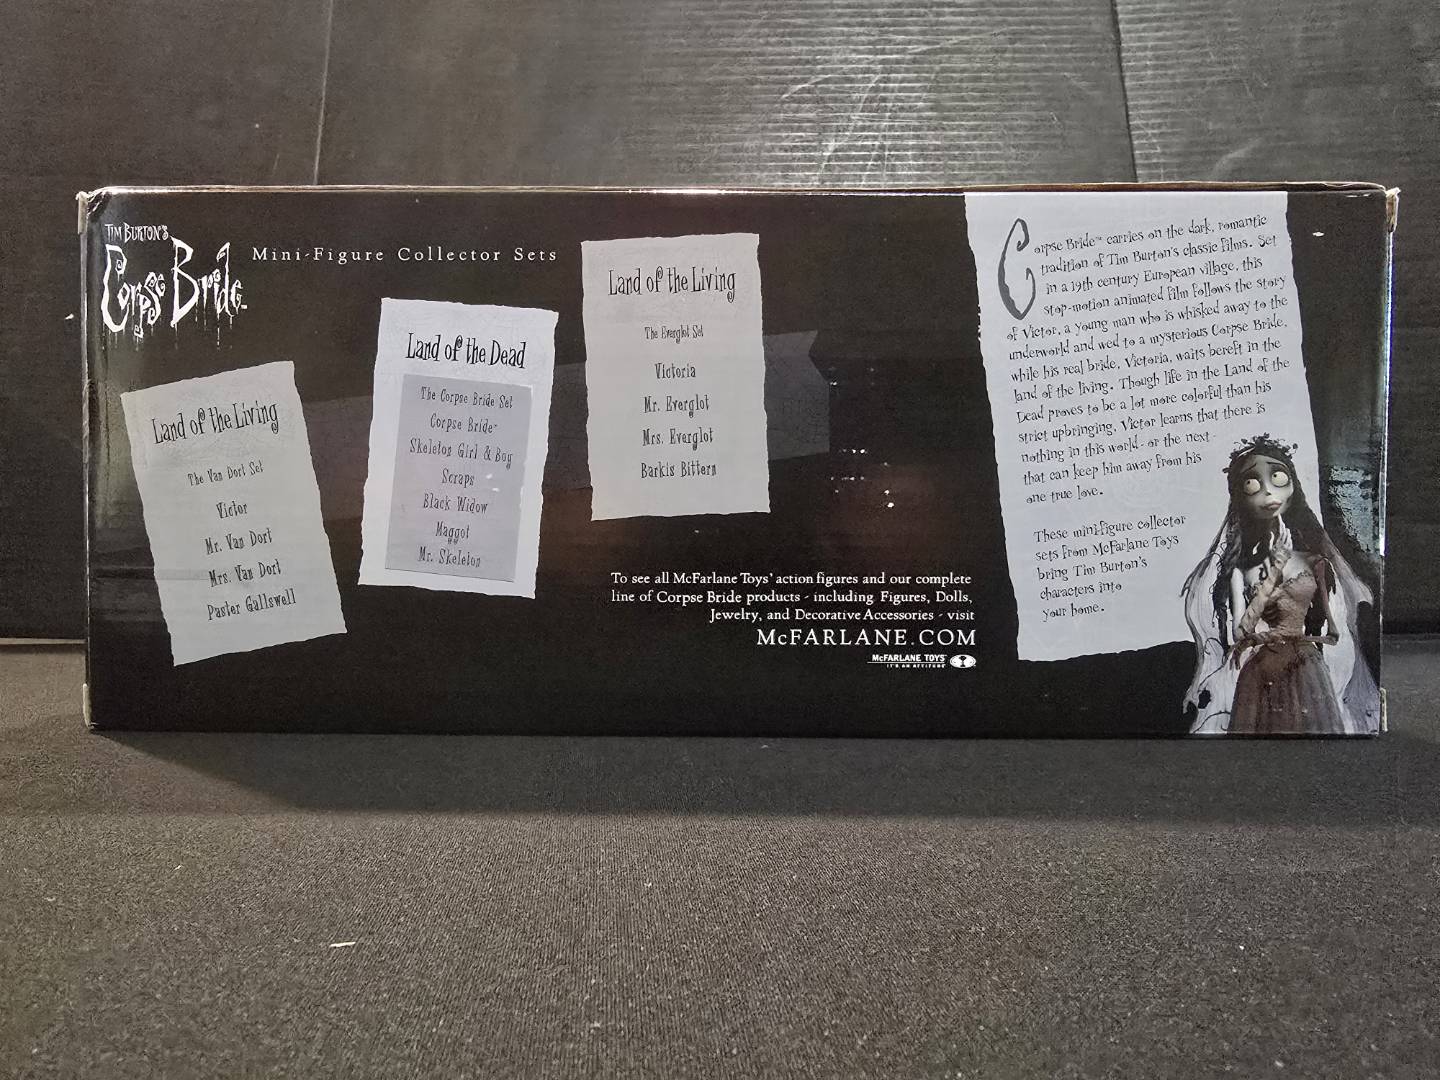 TIM BURTON'S
Corpse Bride™
Mini-Figure Collector Sets
Land of the Living
The Van Dort Set
Victor
Mr. Van Dort
Mrs. Van Dort
Paster Gallswell
Land of the Dead
The Corpse Bride Set
Corpse Bride™
Skeleton Girl & Boy
Scraps
Black Widow
Maggot
Mr. Skeleton
Land of the Living
The Everglot Set
Victoria
Mr. Everglot
Mrs. Everglot
Barkis Bittern
To see all McFarlane Toys' action figures and our complete
line of Corpse Bride products - including Figures, Dolls,
Jewelry, and Decorative Accessories - visit
McFARLANE.COM
McFARLANE TOYS™
IT'S AN ATTITUDE
Corpse Bride™ carries on the dark, romantic
tradition of Tim Burton's classic films. Set
in a 19th century European village, this
stop-motion animated film follows the story
of Victor, a young man who is whisked away to the
underworld and wed to a mysterious Corpse Bride,
while his real bride, Victoria, waits bereft in the
land of the living. Though life in the Land of the
Dead proves to be a lot more colorful than his
strict upbringing, Victor learns that there is
nothing in this world - or the next -
that can keep him away from his
one true love.
These mini-figure collector
sets from McFarlane Toys
bring Tim Burton's
characters into
your home.